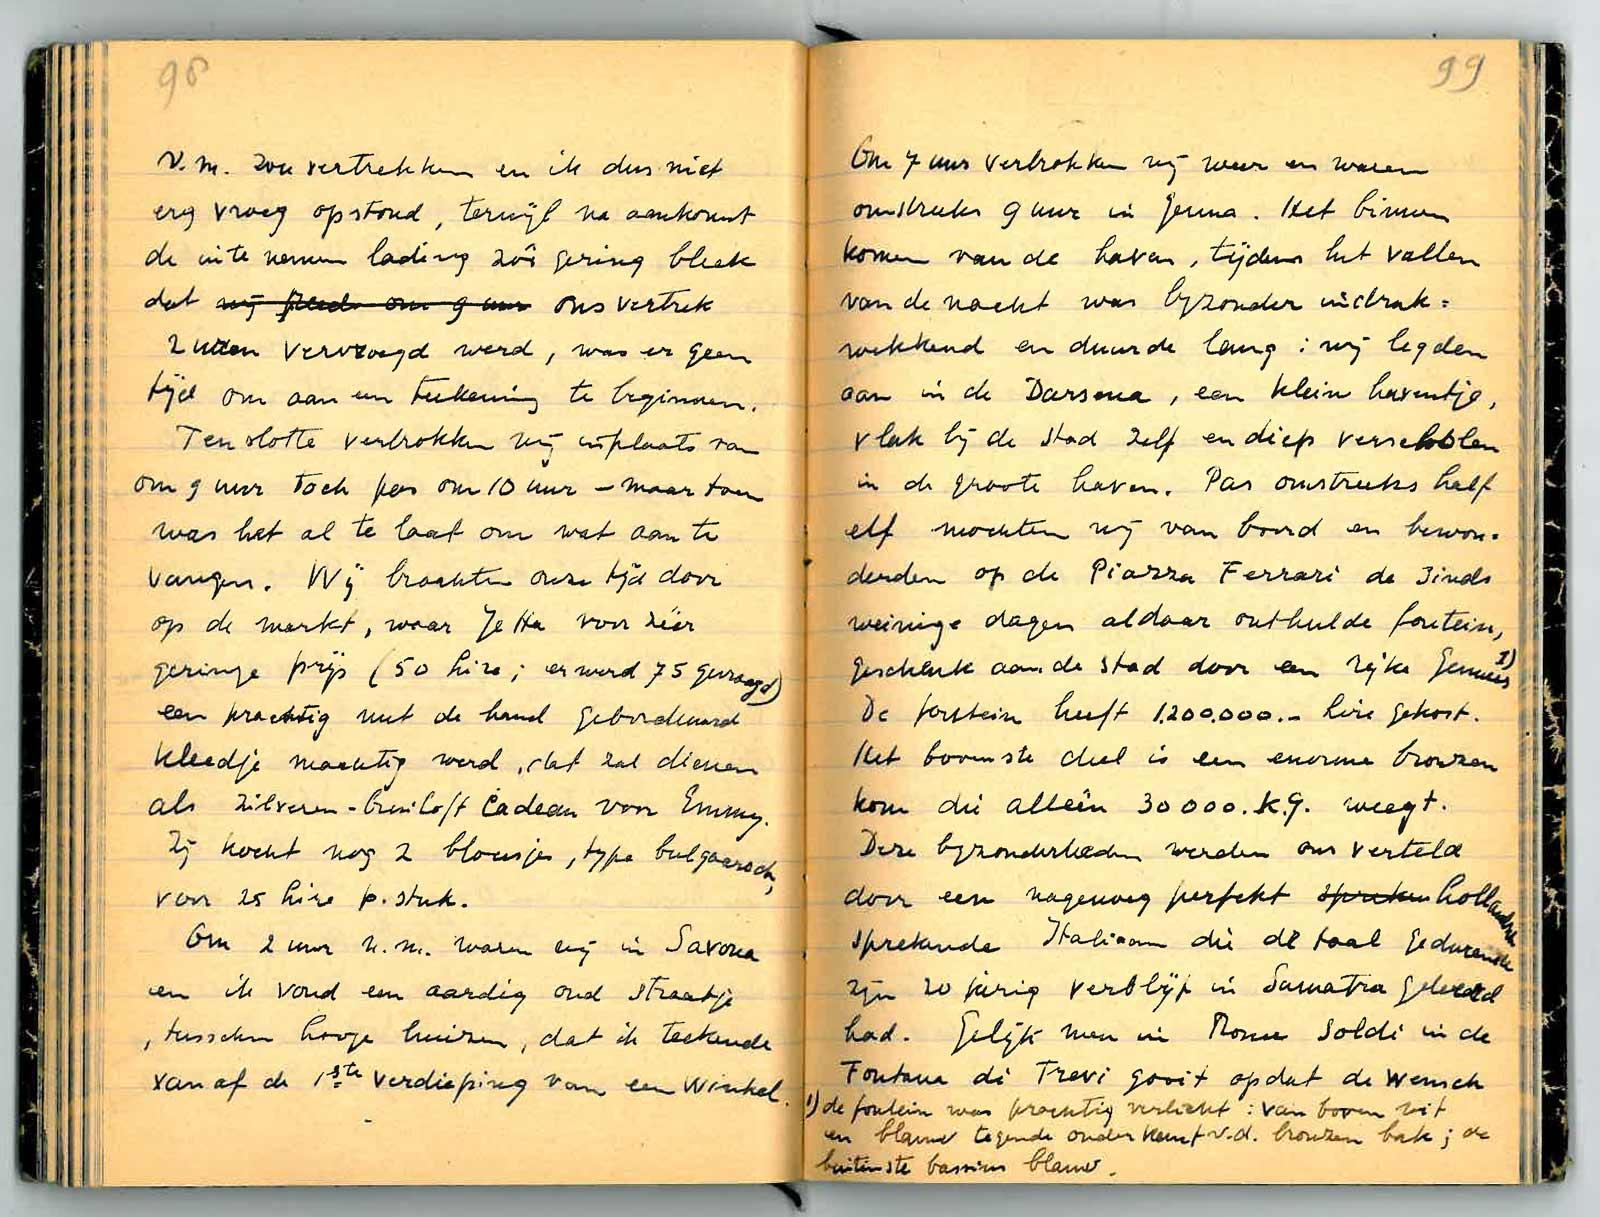 98
v.m. zou vertrekken en ik dus niet
erg vroeg opstond, terwijl na aankomst
de inte nemen lading zóó gering bleek
dat wij reeds om 9 uur ons vertrek
2 uren vervroegd werd, was er geen
tijd om aan een teekening te beginnen.
Ten slotte vertrokken wij inplaats van
om 9 uur toch pas om 10 uur – maar toen
was het al te laat om wat aan te
vangen. Wij brachten onze tijd door
op de markt, waar Jetta voor zéér
geringe prijs (50 Lire; er werd 75 gevraagd)
een prachtig met de hand geborduurd
kleedje machtig werd, dat zal dienen
als zilveren-bruiloft cadeau voor Emmy.
Zij kocht nog 2 blousjes, type bulgaarsch,
voor 25 Lire p. stuk.
Om 2 uur n.m. waren wij in Savona
en ik vond een aardig oud straatje
, tusschen hooge huizen, dat ik teekende
vanaf de 1ste verdieping van een winkel.
99
Om 7 uur vertrokken wij weer en waren
omstreeks 9 uur in Genua. Het binnen
komen van de haven, tijdens het vallen
van de nacht was byzonder indruk=
wekkend en duurde lang: wij legden
aan in de Darsena, een klein haventje,
vlak bij de stad zelf en diep verscholen
in de groote haven. Pas omstreeks half
elf mochten wij van boord en bewon-
derden op de Piazza Ferrari de sinds
weinige dagen aldaar onthulde fontein,
geschenk aan de stad door een rijke Genuees 1)
De fontein heeft 1.200.000.- Lire gekost.
Het bovenste deel is een enorme bronzen
kom die alleen 30000. K.G. weegt.
Deze byzonderheden werden ons verteld
door een nagenoeg perfekt spreken hollandsch
sprekende Italiaan die de taal gedurende
zijn 20 jarig verblijf in Sumatra geleerd
had. Gelijk men in Rome soldi in de
Fontana di Trevi gooit opdat de wensch
1) de fontein was prachtig verlicht: van boven wit
en blauw tegen de onderkant v.d. bronzen bak; de
buitenste bassins blauw.